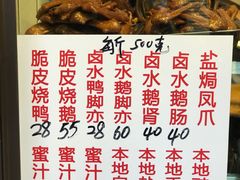 每斤500克
脆皮烧鸭 28
脆皮烧鹅 55
卤水鸭脚亦 28
卤水鹅脚亦 60
卤水鹅肾 40
卤水鹅肠 40
盐焗凤爪
蜜汁
蜜汁
本地
本地
本地
本地